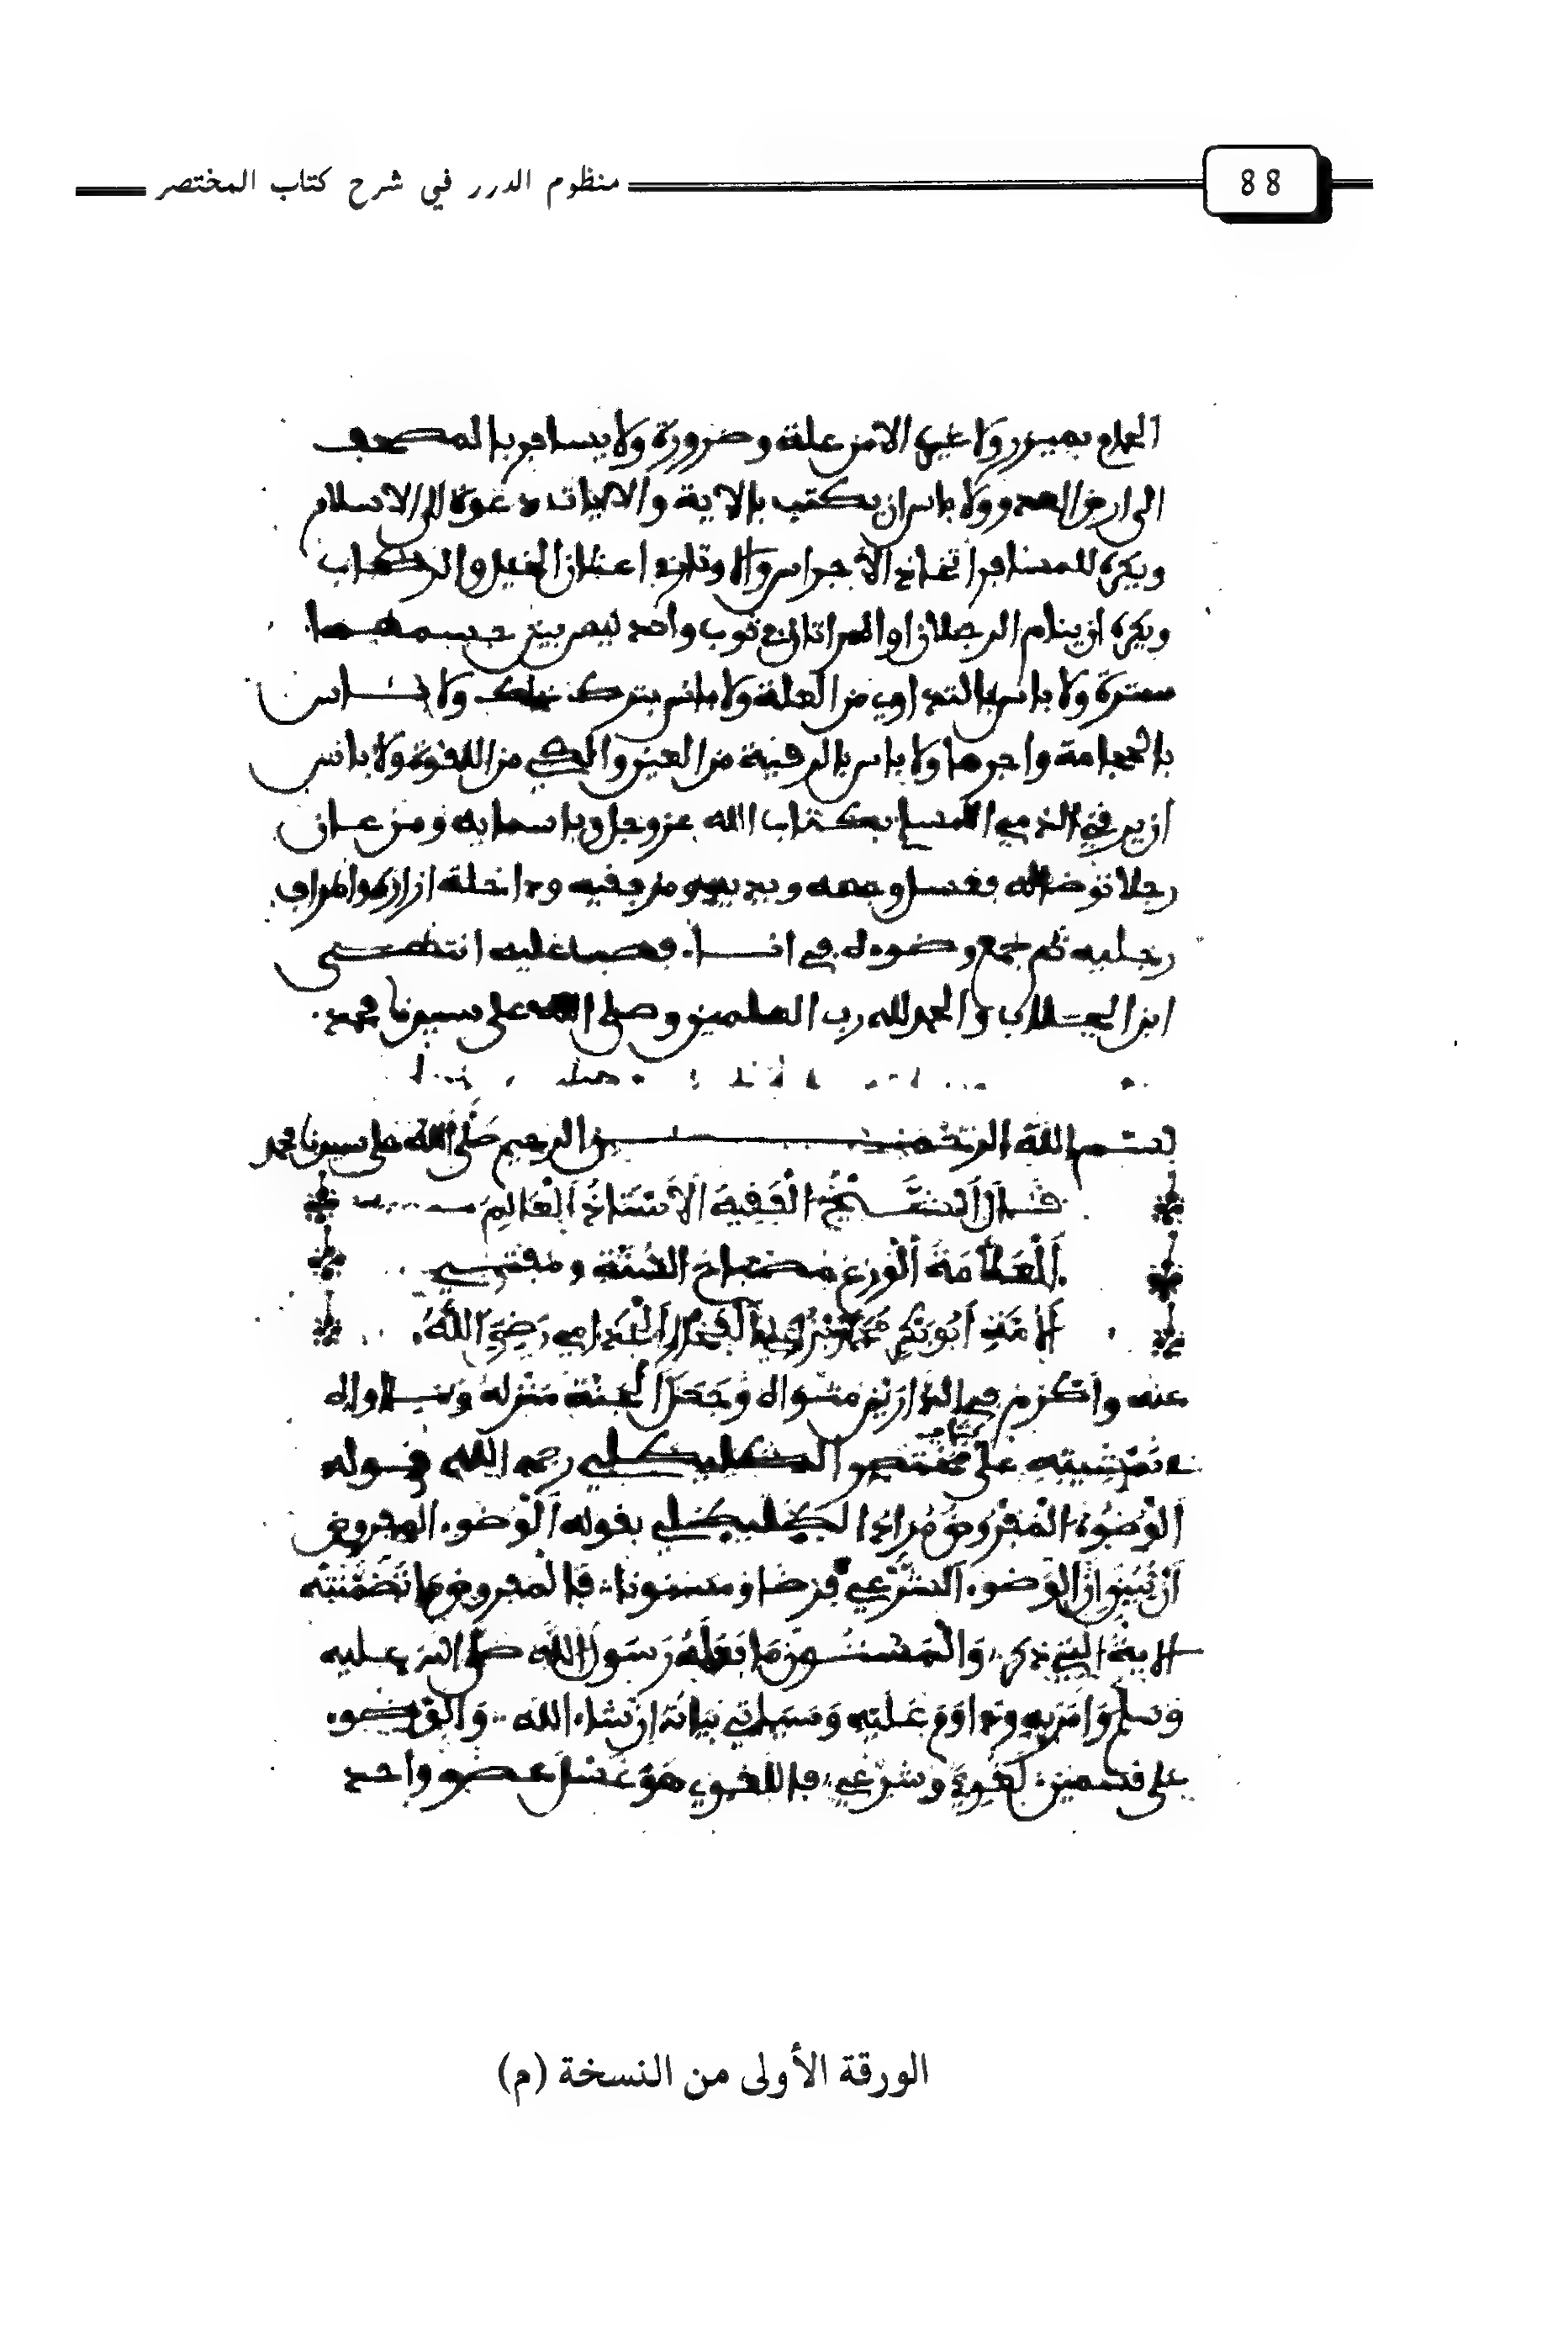 منظوم الدرر في شرح كتاب المختصر
88
الحمام بميزر ولا غيره الا من علة وضرورة ولا يسافر بالمصحف
الى ارض العدو ولا باس ان يكتب بالاية والايات دعوة الى الاسلام
ويكره للمسافر اتخاذ الاجراس والاوتار في اعناق الخيل والركاب
ويكره ان ينام الرجلان او المراتان في ثوب واحد ليس بين جسمهما
سترة ولا باس بالتداوي من العلة ولا باس بترك ذلك ولا باس
بالحجامة واجرها ولا باس بالرقية من العين والكي من اللقوة ولا باس
ان يرقي الذمي المسلم بكتاب الله عز وجل وباسمايه ومن عان
رجلا توضا له فغسل وجهه ويديه ومرفقيه وداخلة ازاره واطراف
رجليه ثم جمع وضوءه له في انا. فصبه عليه انتهى
ابن الجلاب والحمد لله رب العلمين وصلى الله على سيدنا محمد.
بسم الله الرحمن الرحيم صلى الله على سيدنا محمد
قَال اَلشَّيْخُ الْفَقِيهُ الْأُسْتَاذُ اَلْعَالِمُ
اَلْعَلَّامَةُ اَلْوَرِعُ مصباح السُّنَّة ومفتي
الْأُمَّة أَبُو بَكْرٍ مُحَمَّد بْنُ اَلْفَخَّار اَلْجُذَامي رَضِيَ اَللَّهُ
عنه وأكرم في الدَّارَيْن مثواه وَجَعَلَ اَلجنَّة مَنْزله وَ
على كتاب مختصر الطليطلي رحمه الله قوله
اَلْوُضُوءُ الْمَفْرُوضُ مُرَادُ الطليطلي بقوله اَلْوضوء المفروض
أن يُبَيّن أنّ الوَضوء اَلشَّرْعي فرضا ومسنونا فالمفروض ما تَضَمَّنَتْه
الايةُ التي ذكر، وَالْمَسْنُون مَا فَعَلَهُ رَسُول اللَّه صَلَّى الله عليه
وسلم وَأمَرَ به ودَاوَمَ عَلَيْهِ وَسَيَأتي بَيَانُهُ إن شاء الله وَالْوُضوء
على قسمين لُغَوِيّ وشَرْعِي، فاللغوي هُوَ غَسْل عضو واحد
الورقة الأولى من النسخة (م)